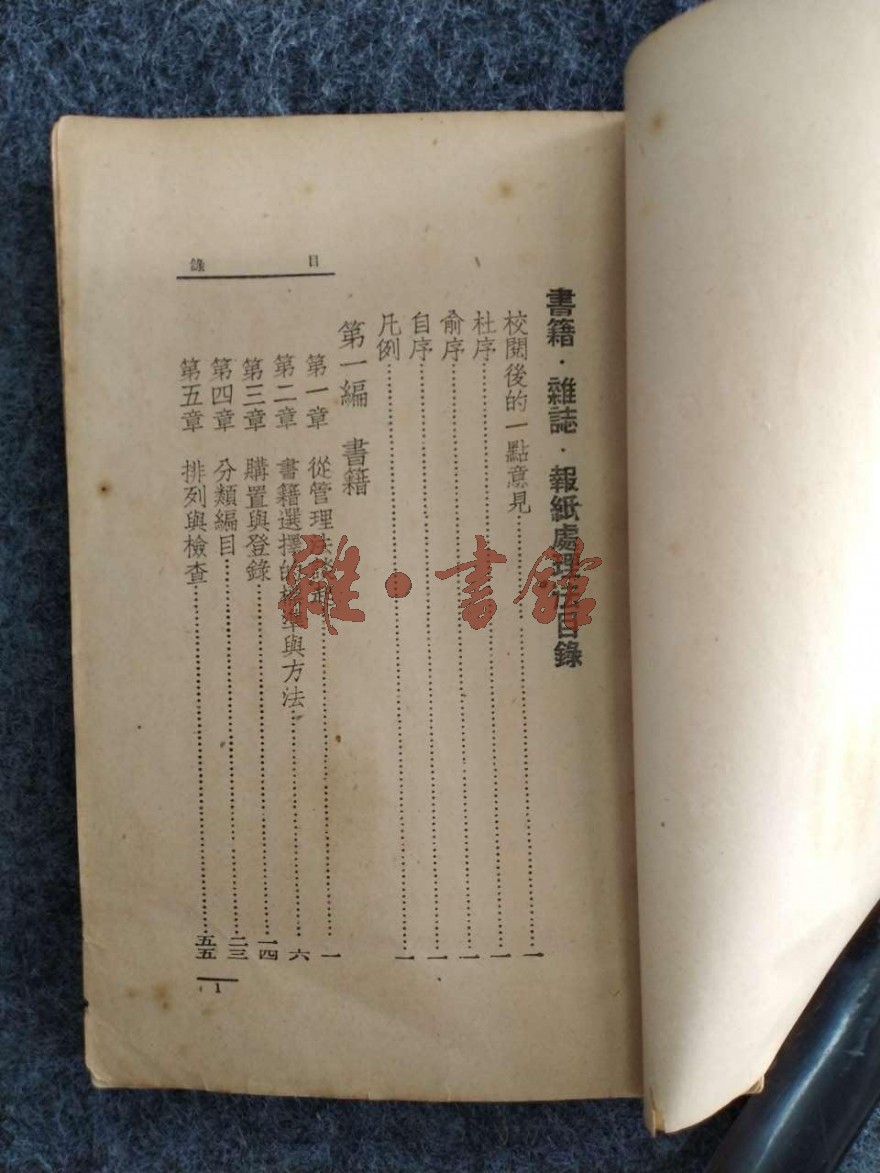 書籍·雜誌·報紙處理法目錄
校閱後的一點意見……一
杜序……一
俞序……一
自序……一
凡例……一
第一編 書籍
第一章 從管理法談起……一
第二章 書籍選擇的標準與方法……六
第三章 購置與登錄……一四
第四章 分類編目……二三
第五章 排列與檢查……五五
目錄
1
雜·書館